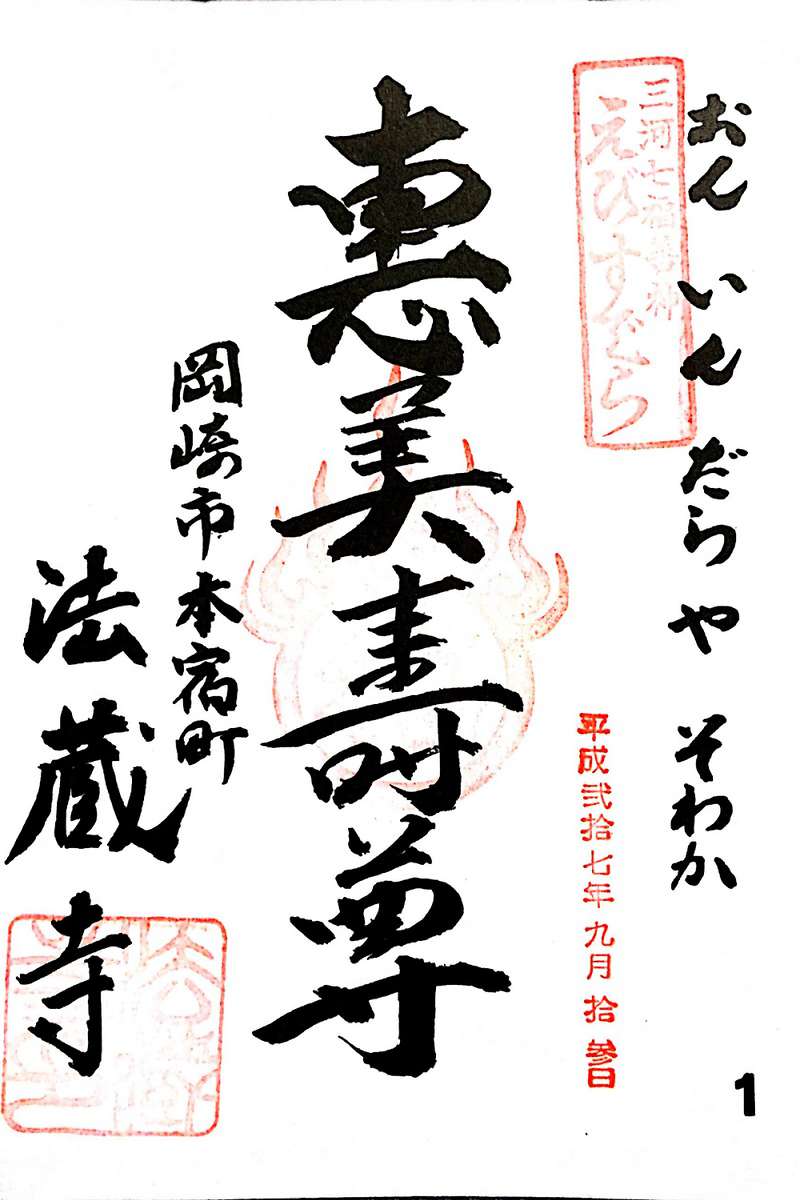 おん いん だらや そわか
三河七福神
えびすでら
平成弐拾七年九月拾参日
恵美寿尊
岡崎市本宿町
法蔵寺
1